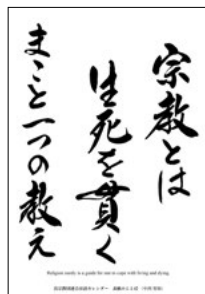 宗教とは
生死を貫く
まこと一つの教え
Religion surely is a guide for one to cope with living and dying.